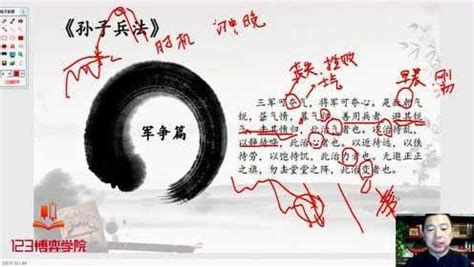 《孙子兵法》
时机
晚
丧失
挫败
士气
早晨
军争篇
三军可夺气，将军可夺心。是故朝气
锐，昼气惰，暮气归。善用兵者，避其锐
气，击其惰归，此治气者也。以治待乱，
以静待哗，此治心者也。以近待远，以佚
待劳，以饱待饥，此治力者也。无邀正正
之旗，勿击堂堂之阵，此治变者也。
123博弈学院